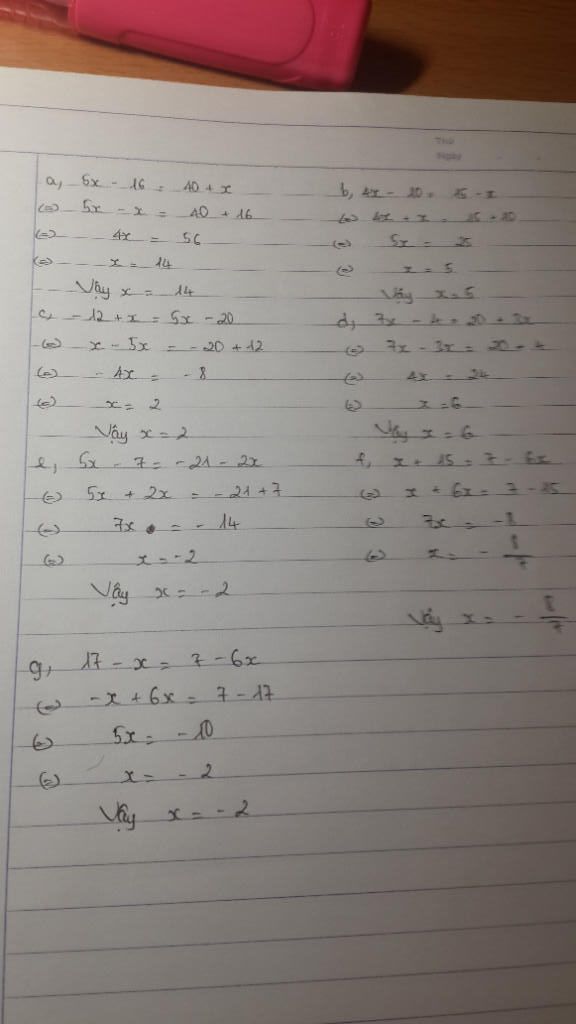 Thứ
Ngày
a, 5x - 16 = 40 + x
(=) 5x - x = 40 + 16
(=) 4x = 56
(=) x = 14
Vậy x = 14
b, 4x - 10 = 15 - x
(=) 4x + x = 15 + 10
(=) 5x = 25
(=) x = 5
Vậy x = 5
c, -12 + x = 5x - 20
(=) x - 5x = -20 + 12
(=) -4x = -8
(=) x = 2
Vậy x = 2
d, 7x - 4 = 20 + 3x
(=) 7x - 3x = 20 + 4
(=) 4x = 24
(=) x = 6
Vậy x = 6
e, 5x - 7 = -21 - 2x
(=) 5x + 2x = -21 + 7
(=) 7x = -14
(=) x = -2
Vậy x = -2
f, x + 15 = 7 - 6x
(=) x + 6x = 7 - 15
(=) 7x = -8
(=) x = - 8/7
Vậy x = - 8/7
g, 17 - x = 7 - 6x
(=) -x + 6x = 7 - 17
(=) 5x = -10
(=) x = -2
Vậy x = -2